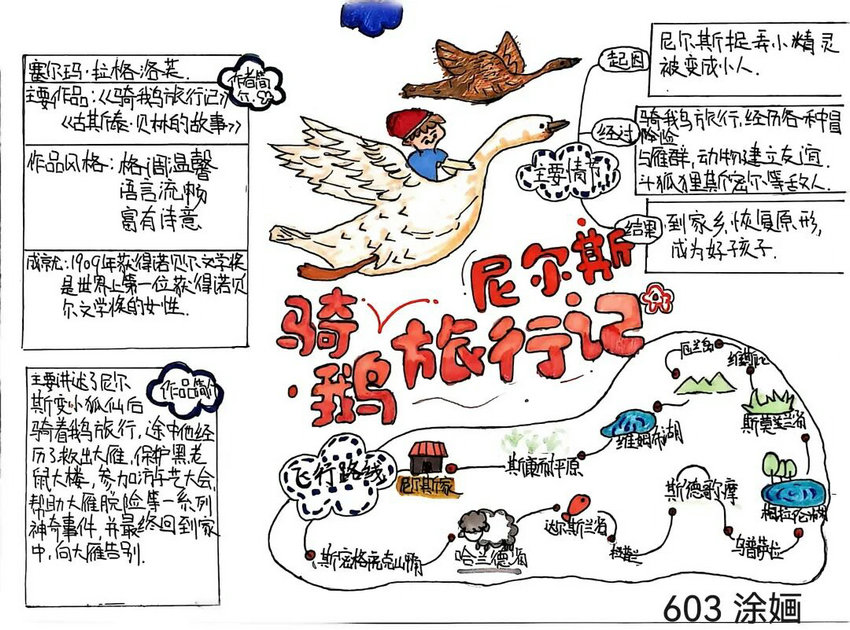 塞尔玛·拉格洛芙.
作者简
介.
主要作品:《骑鹅旅行记》
《古斯泰·贝林的故事》
作品风格:格调温馨
语言流畅
富有诗意
成就:1909年获得诺贝尔文学奖
是世界上第一位获得诺贝
尔文学奖的女性.
作品简介
主要讲述了尼尔
斯变小狐仙后
骑着鹅旅行,途中他经
历了救出大雁,保护黑老
鼠大楼,参加济车艺大会,
帮助大雁脱险等一系列
神奇事件,并最终回到家
中,向大雁告别.
主要情节
起因
尼尔斯捉弄小精灵
被变成小人.
经过
骑鹅旅行,经历各种冒
险
与雁群,动物建立友谊.
斗狐狸斯密尔等敌人.
结果
到家乡,恢复原形,
成为好孩子.
尼尔斯
骑
·鹅旅行记
飞行路线
尼尔斯家
斯康耐平原
维姆布湖
厄兰岛
斯莫兰省
乌普萨拉
斯德哥摩
达尔斯兰省
哈兰德省
斯密格霍克山嘴
603 涂婳